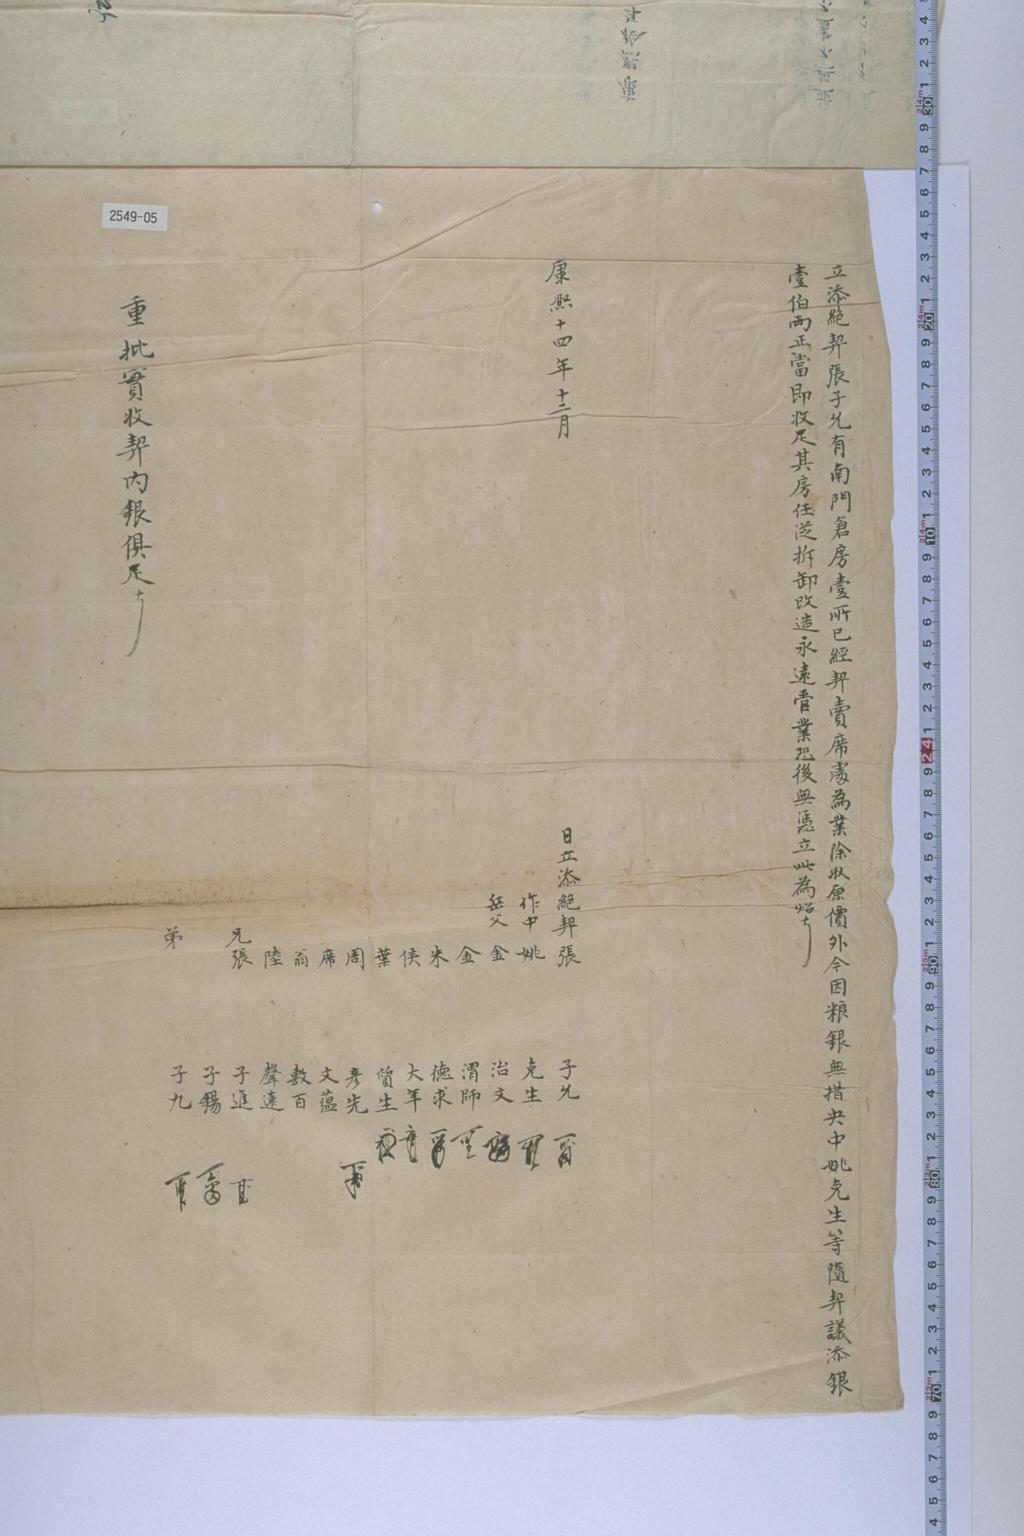 立添絕契張子允有南門倉房壹所已經契賣席處為業除收原價外今因粮銀無措央中姚克生等隨契議添銀
壹伯两正當即收足其房任從拆卸改造永遠管業恐後無憑立此為炤
康熙十四年十二月
日立添絕契張子允
作中姚克生
岳父金治文
金渭師
朱德求
侯大年
葉質生
周彥先
席文蘊
翁敷百
陸聲遠
兄張子進
子錫
弟子九
重批實收契內銀俱足
2549-05